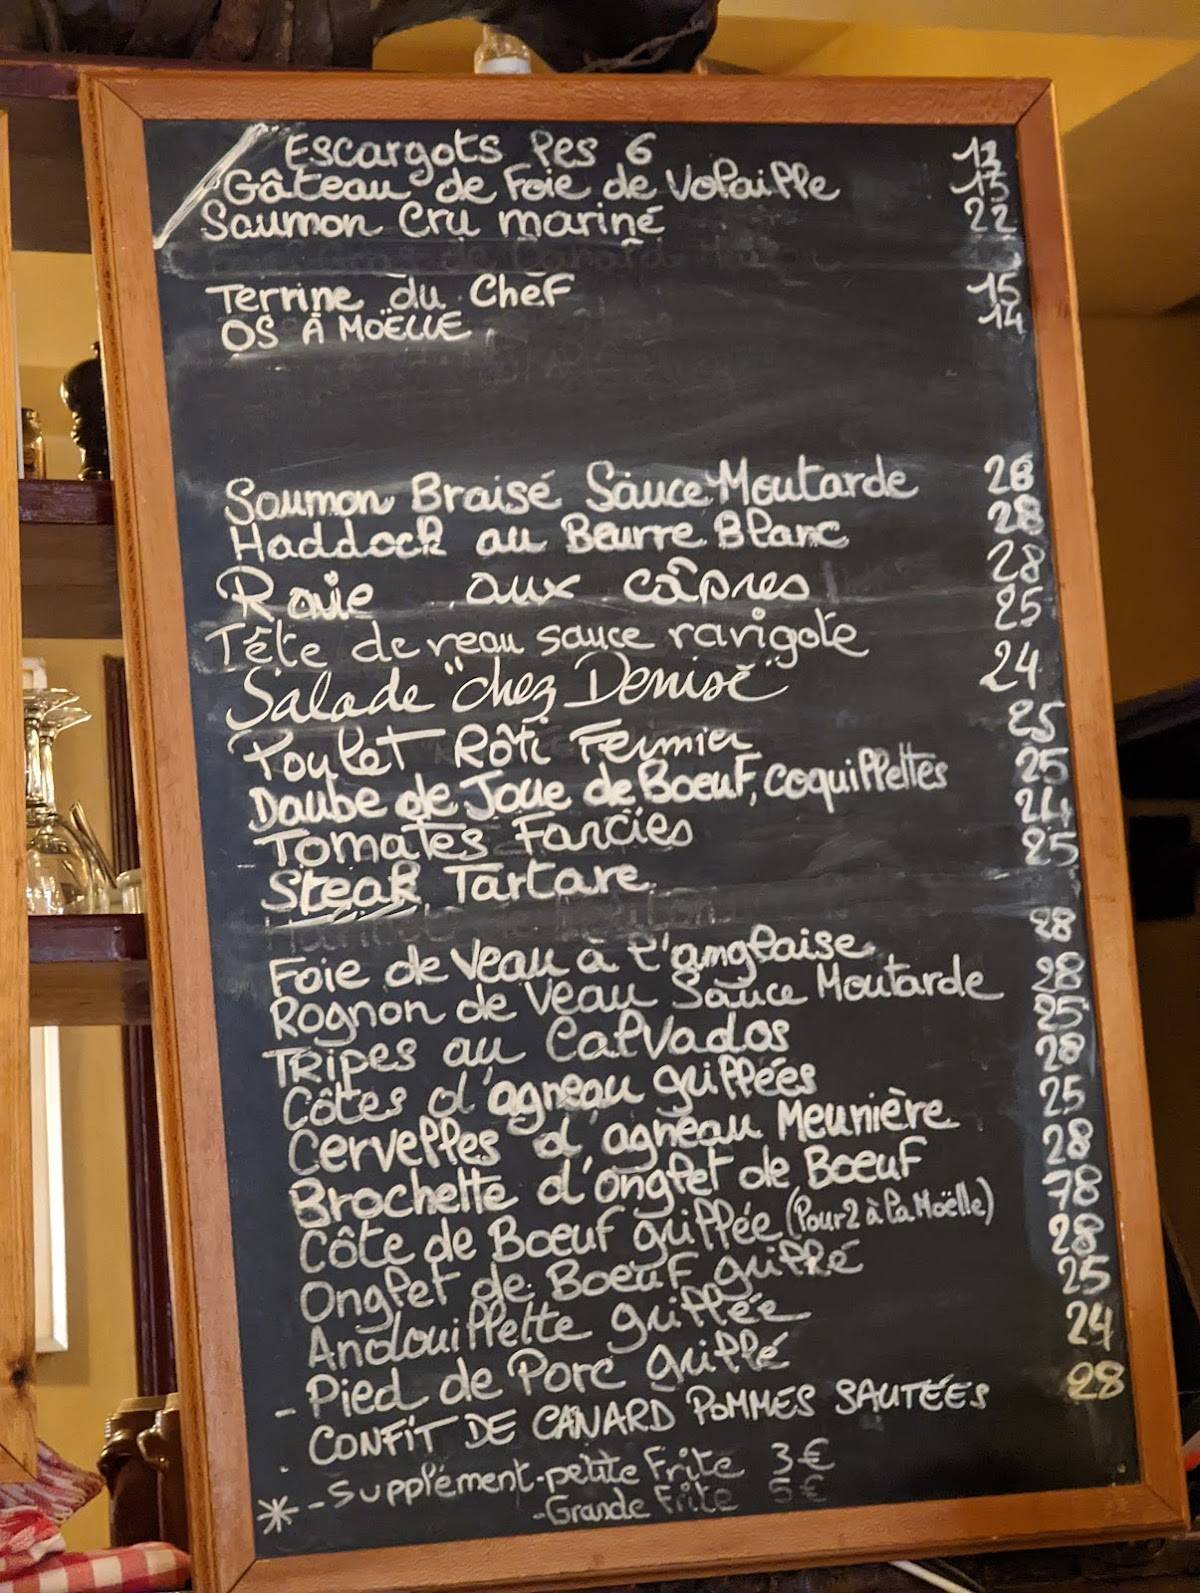 Escargots les 6 12
Gâteau de Foie de Volaille 15
Saumon Cru mariné 22
Terrine du Chef 15
OS À MOËLLE 14
Saumon Braisé Sauce Moutarde 28
Haddock au Beurre Blanc 28
Raie aux câpres 28
Tête de veau sauce ravigote 25
Salade "chez Denise" 24
Poulet Rôti Fermier 25
Daube de Joue de Boeuf, coquillettes 25
Tomates Farcies 24
Steak Tartare 25
Foie de Veau à l'anglaise 28
Rognon de Veau Sauce Moutarde 28
TRipes au Calvados 25
Côtes d'agneau grillées 28
Cervelles d'agneau Meunière 25
Brochette d'onglet de Boeuf 28
Côte de Boeuf grillée (Pour 2 à la Moëlle) 78
Onglet de Boeuf grillé 28
Andouillette grillée 25
- Pied de Porc grillé 24
. CONFIT DE CANARD POMMES SAUTÉES 28
* - Supplément - petite Frite 3 €
- Grande Frite 5 €